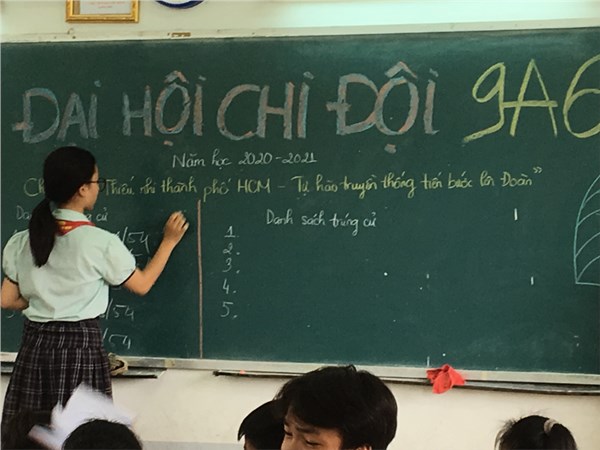 ĐẠI HỘI CHI ĐỘI 9A6
Năm học 2020 - 2021
Thiếu nhi thành phố HCM - Tự hào truyền thống tiến bước lên Đoàn"
cử Danh sách trúng cử
/54 1.
2.
3.
/54 4.
5.
/54